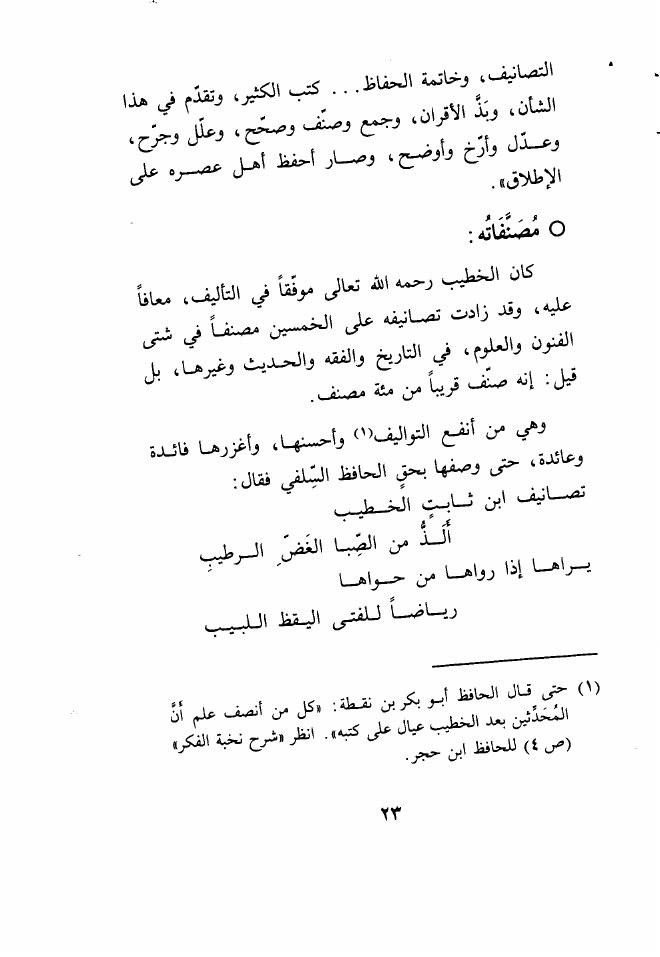 التصانيف، وخاتمة الحفاظ... كتب الكثير، وتقدّم في هذا
الشأن، وبَذَّ الأقران، وجمع وصنّف وصحّح، وعلّل وجرّح،
وعدّل وأرّخ وأوضح، وصار أحفظ أهل عصره على
الإطلاق».
○ مُصَنَّفَاتُه :
كان الخطيب رحمه الله تعالى موفّقاً في التأليف، معافاً
عليه، وقد زادت تصانيفه على الخمسين مصنفاً في شتى
الفنون والعلوم، في التاريخ والفقه والحديث وغيرها، بل
قيل: إنه صنّف قريباً من مئة مصنف.
وهي من أنفع التواليف(١) وأحسنها، وأغزرها فائدة
وعائدة، حتى وصفها بحقٍ الحافظ السِّلفي فقال:
تصانيف ابن ثابتٍ الخطيب
أَلَذُّ من الصِّبا الغَضِّ الرطيبِ
يراها إذا رواها من حواها
رياضاً للفتى اليقظ اللبيب
(١) حتى قال الحافظ أبو بكر بن نقطة: «كل من أنصف علم أنَّ
المُحَدِّثين بعد الخطيب عيال على كتبه». انظر «شرح نخبة الفكر»
(ص ٤) للحافظ ابن حجر.
٢٣